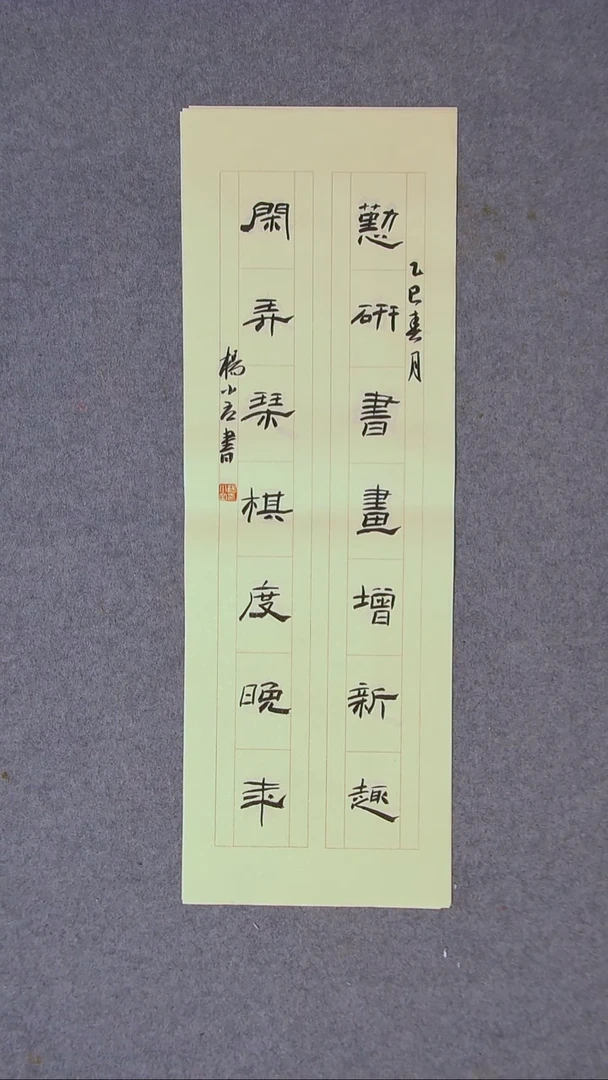 乙巳春月
懃研書畫增新趣
閑弄琹棋度晚年
楊小書